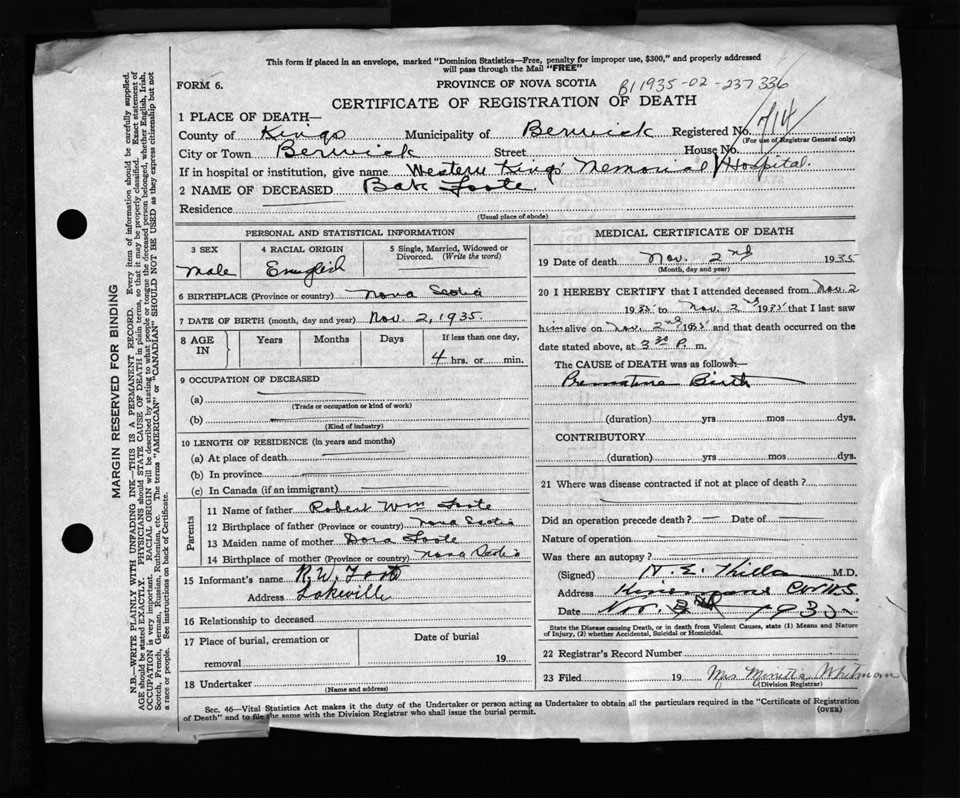 This form if placed in an envelope, marked "Dominion Statistics—Free, penalty for improper use, $300," and properly addressed
will pass through the Mail "FREE"
FORM 6.
PROVINCE OF NOVA SCOTIA
B11935-02-237336
CERTIFICATE OF REGISTRATION OF DEATH
1 PLACE OF DEATH—
County of Kings Municipality of Berwick Registered No. 714
(For use of Registrar General only)
City or Town Berwick Street House No.
If in hospital or institution, give name Western Kings Memorial Hospital.
2 NAME OF DECEASED Foote
Residence
(Usual place of abode)
PERSONAL AND STATISTICAL INFORMATION
3 SEX 4 RACIAL ORIGIN 5 Single, Married, Widowed or
Divorced. (Write the word)
Male English
6 BIRTHPLACE (Province or country) Nova Scotia
7 DATE OF BIRTH (month, day and year) Nov. 2, 1935.
8 AGE IN Years Months Days If less than one day,
4 hrs. or min.
9 OCCUPATION OF DECEASED
(a)
(Trade or occupation or kind of work)
(b)
(Kind of industry)
10 LENGTH OF RESIDENCE (in years and months)
(a) At place of death
(b) In province
(c) In Canada (if an immigrant)
Parents
11 Name of father Robert Wm Foote
12 Birthplace of father (Province or country) Nova Scotia
13 Maiden name of mother Dora Foote
14 Birthplace of mother (Province or country) Nova Scotia
15 Informant's name R. W. Foote
Address Lakeville
16 Relationship to deceased
17 Place of burial, cremation or Date of burial
removal 19
18 Undertaker
(Name and address)
MEDICAL CERTIFICATE OF DEATH
19 Date of death Nov. 2nd 1935
(Month, day and year)
20 I HEREBY CERTIFY that I attended deceased from Nov. 2
1935 to Nov. 2nd 1935 that I last saw
him alive on Nov. 2nd 1935 and that death occurred on
date stated above, at 3 30 P. m.
The CAUSE of DEATH was as follows:—
Premature Birth
(duration) yrs mos dys.
CONTRIBUTORY
(duration) yrs. mos dys.
21 Where was disease contracted if not at place of death?
Did an operation precede death? Date of
Nature of operation
Was there an autopsy?
(Signed) H. E. M.D.
Address
Date Nov. 1935
State the Disease causing Death, or in death from Violent Causes, state (1) Means and Nature
of Injury, (2) whether Accidental, Suicidal or Homicidal.
22 Registrar's Record Number
23 Filed 19 Mrs Whitman
(Division Registrar)
Sec. 46—Vital Statistics Act makes it the duty of the Undertaker or person acting as Undertaker to obtain all the particulars required in the "Certificate of Registration
of Death" and to file the same with the Division Registrar who shall issue the burial permit.
(OVER)
MARGIN RESERVED FOR BINDING
N.B.—WRITE PLAINLY WITH UNFADING INK—THIS IS A PERMANENT RECORD. Every item of information should be carefully supplied.
AGE should be stated EXACTLY. PHYSICIANS should STATE CAUSE OF DEATH in plain terms, so that it may be properly classified. Exact statement of
OCCUPATION is very important. RACIAL ORIGIN will be described by stating to what people or tongue the deceased person belonged, whether English, Irish,
Scotch, French, German, Russian, Ruthenian, etc. The terms "AMERICAN" or "CANADIAN" SHOULD NOT BE USED as they express citizenship but not
a race or people. See instructions on back of Certificate.